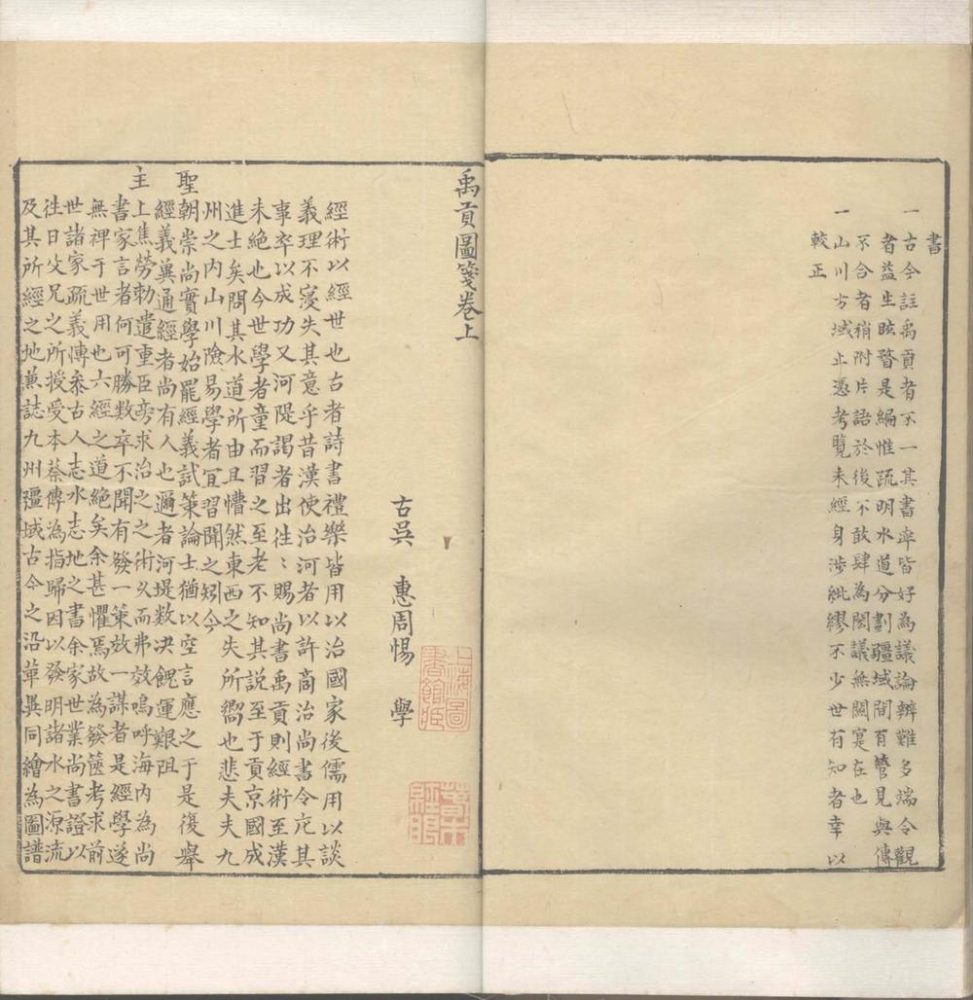 書
一古今註禹貢者不一其書率皆好為議論辨難多端令觀
者益生眩瞀是編惟疏明水道分劃疆域間有管見與傳
不合者稍附片語於後不敢肆為闊議無關寔在也
一山川方域止憑考覽未經身涉紕繆不少世有知者幸以
較正
禹貢圖箋卷上
古吳 惠周惕 學
經術以經世也古者詩書禮樂皆用以治國家後儒用以談
義理不寖失其意乎昔漢使治河者以許商治尚書令庀其
事卒以成功又河隄謁者出往〻賜尚書禹貢則經術至漢
未絕也今世學者童而習之至老不知其説至于貢京國成
進士矣問其水道所由且懵然東西之失所嚮也悲夫夫九
州之内山川險易學者宜習聞之矧今
聖朝崇尚實學始罷經義試策論士猶以空言應之于是復舉
經義冀通經者尚有人也邇者河堤數决餽運艱阻
主上焦勞勅遣重臣旁求治之之術久而弗效嗚呼海内為尚
書家言者何可勝數卒不聞有發一策放一謀者是經學遂
無裨于世用也六經之道絕矣余甚懼焉故為發篋考求前
世諸家疏義傳叅古人志水志地之書余家世業尚書證以
往日父兄之所授受本蔡傳為指歸因以發明諸水之源流
及其所經之地兼誌九州疆域古今之沿革異同繪為圖譜
上海圖書館藏